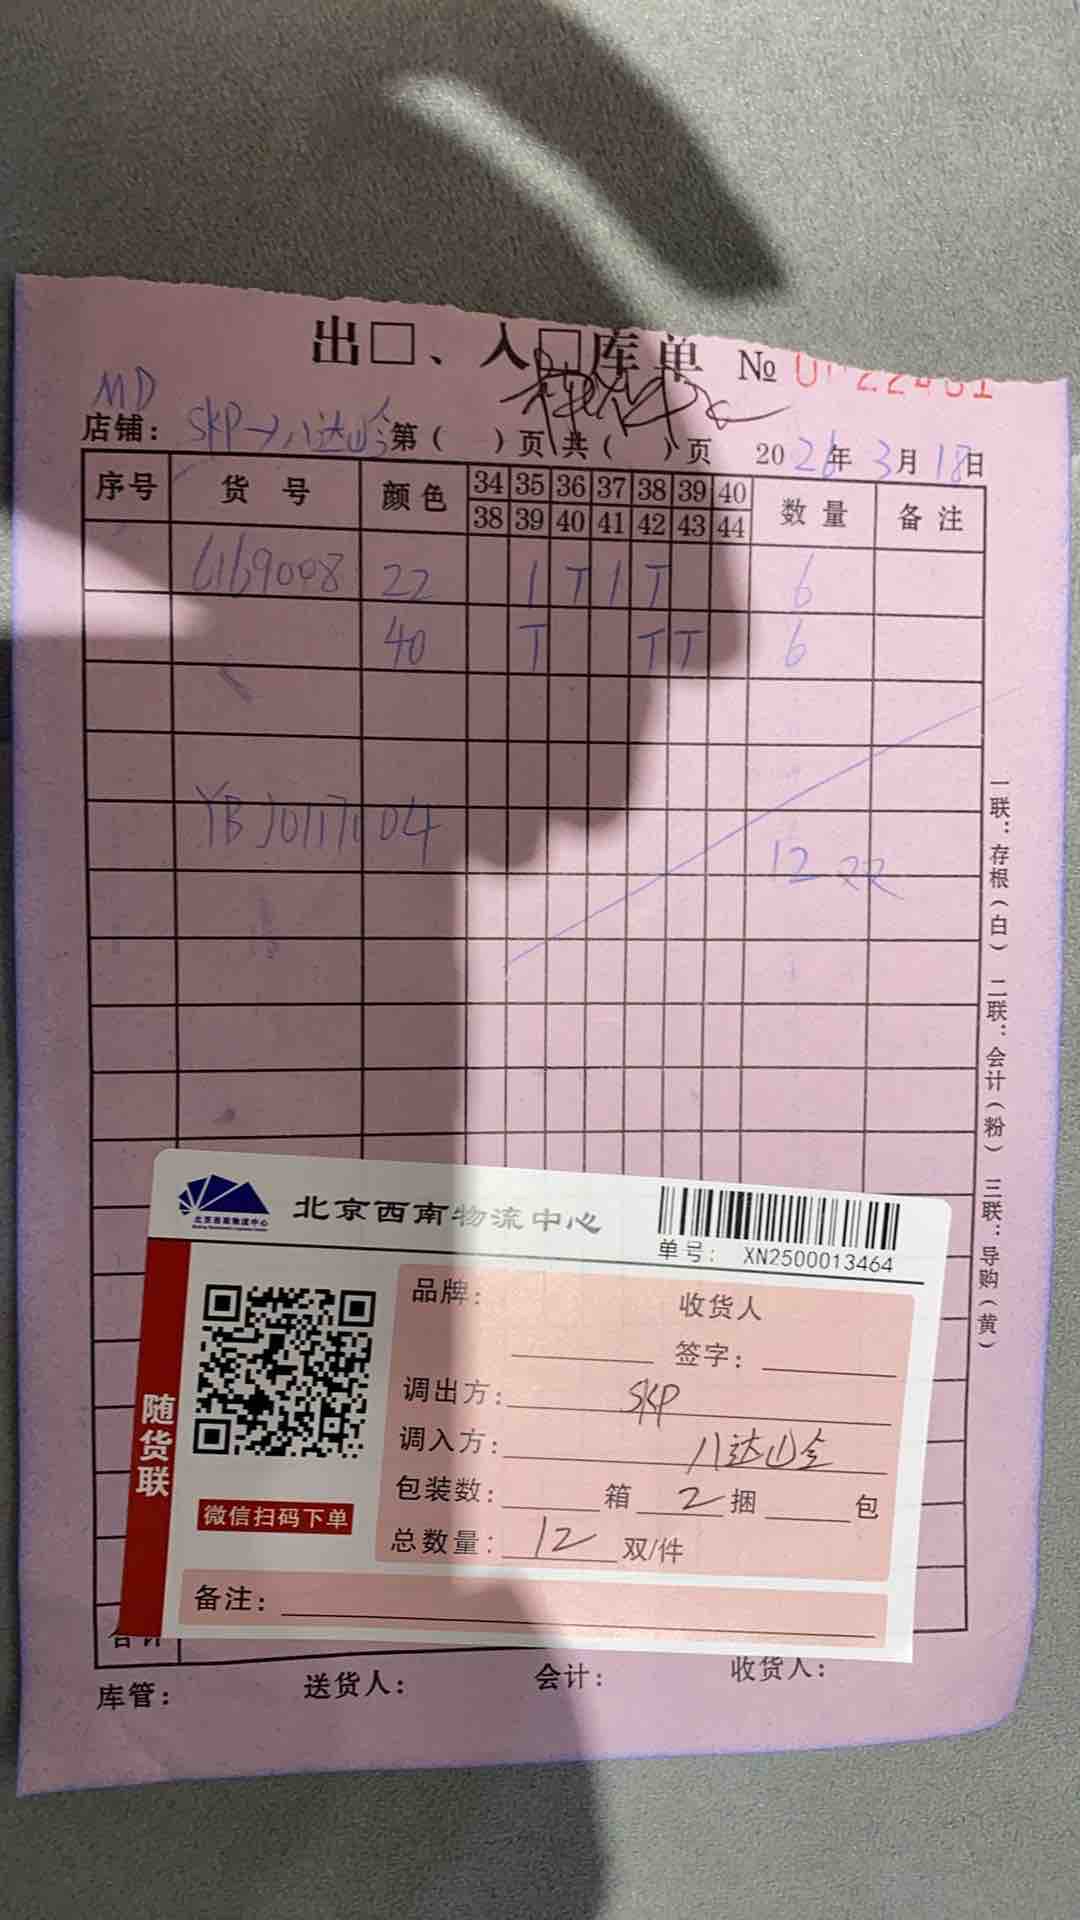 出□、入□库单 №
MD
店铺: SKP→八达山仓 第( )页共( )页 2026年3月18日
序号 货号 颜色 34 35 36 37 38 39 40 数量 备注
38 39 40 41 42 43 44
6169008 22 1 T 1 T 6
40 T T T 6
YBJ0117004
12双
一联:存根(白) 二联:会计(粉) 三联:导购(黄)
北京西南物流中心
北京西南物流中心
单号: XN2500013464
随货联
微信扫码下单
品牌: 收货人
签字:
调出方: SKP
调入方: 八达山仓
包装数: 箱 2 捆 包
总数量: 12 双/件
备注:
合计
库管: 送货人: 会计: 收货人: